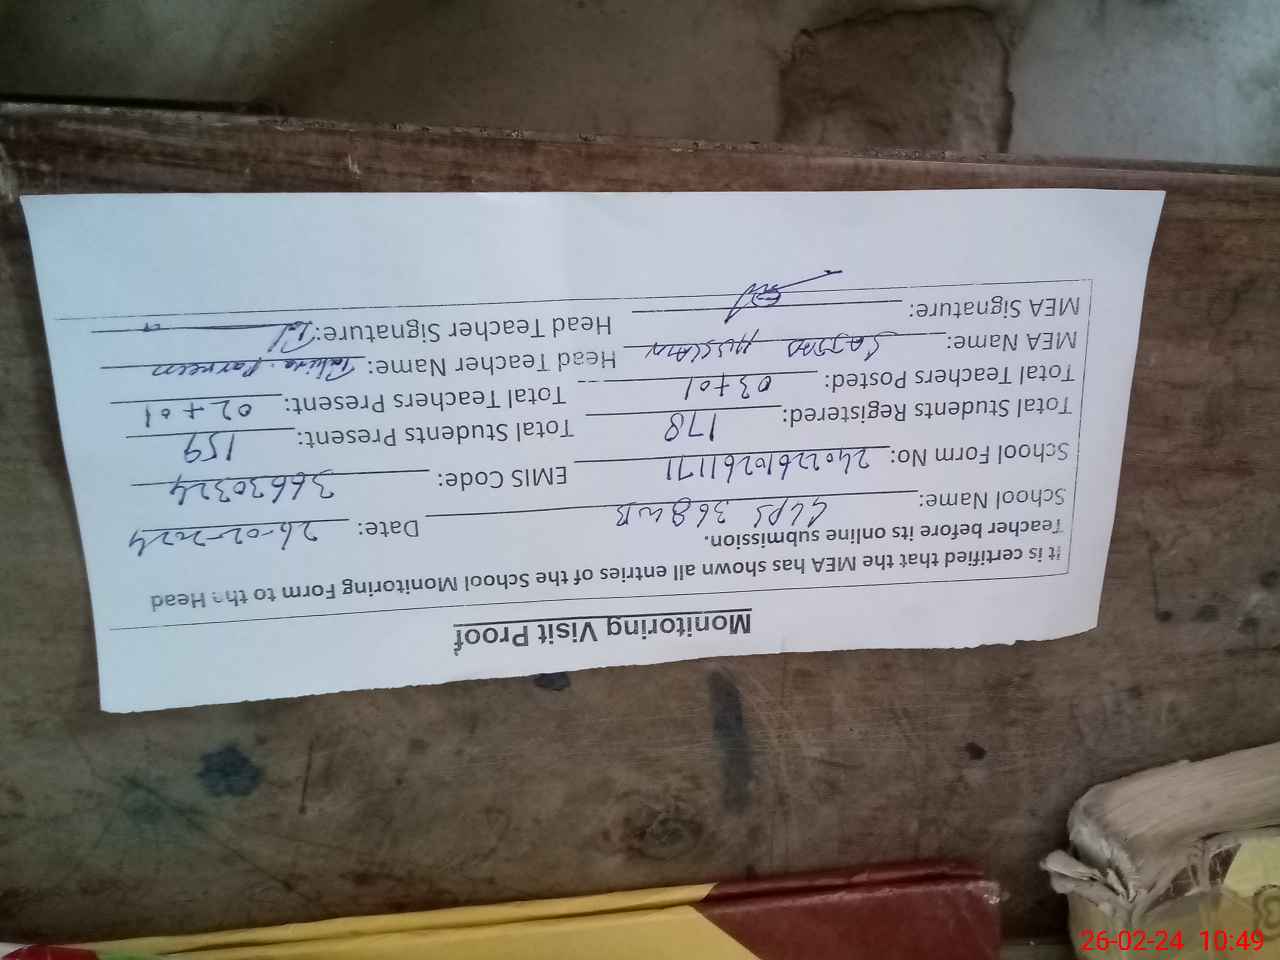 Monitoring Visit Proof
It is certified that the MEA has shown all entries of the School Monitoring Form to the Head
Teacher before its online submission.
School Name: GGPS 368 WB Date: 26-02-2024
School Form No: 24022610261171 EMIS Code: 36630324
Total Students Registered: 178 Total Students Present: 159
Total Teachers Posted: 03+01 Total Teachers Present: 02+01
MEA Name: SAJJAD HUSSAIN Head Teacher Name: Parveen
MEA Signature: Head Teacher Signature:
26-02-24 10:49